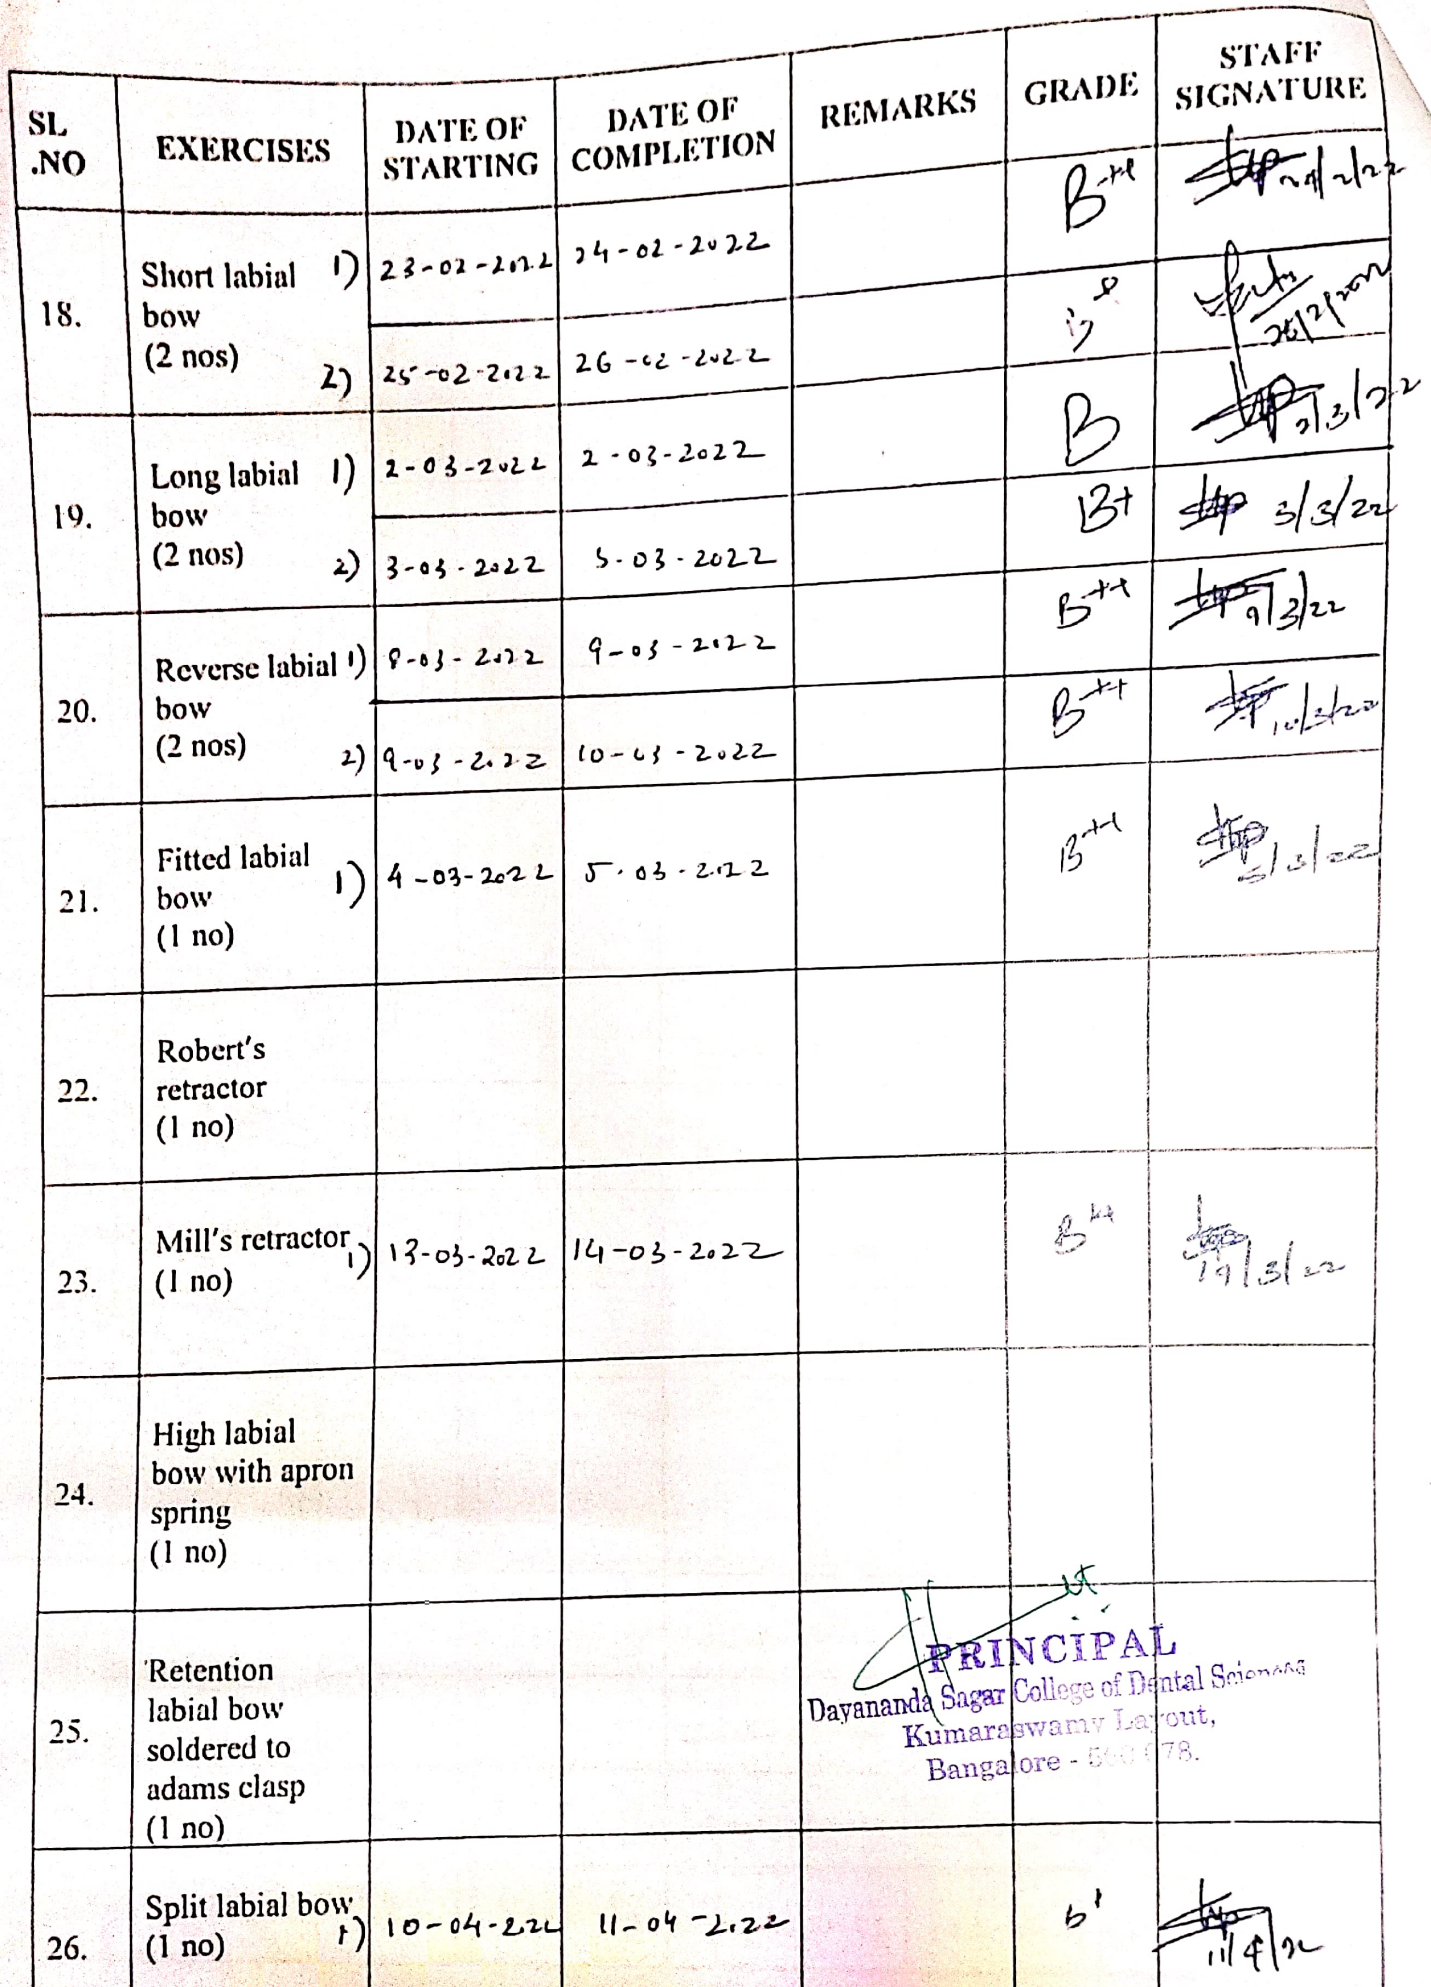 SL .NO EXERCISES DATE OF STARTING DATE OF COMPLETION REMARKS GRADE STAFF SIGNATURE
18. Short labial bow (2 nos) 1) 23-02-2022 24-02-2022 B++ 24/2/22
2) 25-02-2022 26-02-2022
19. Long labial bow (2 nos) 1) 2-03-2022 2-03-2022 B 2/3/22
2) 3-03-2022 3-03-2022 B+ 3/3/22
20. Reverse labial bow (2 nos) 1) 8-03-2022 9-03-2022 B++ 9/3/22
2) 9-03-2022 10-03-2022 B++ 10/3/22
21. Fitted labial bow (1 no) 1) 4-03-2022 5-03-2022 B++ 5/3/22
22. Robert's retractor (1 no)
23. Mill's retractor (1 no) 1) 13-03-2022 14-03-2022 B++ /3/22
24. High labial bow with apron spring (1 no)
25. Retention labial bow soldered to adams clasp (1 no)
PRINCIPAL
Dayananda Sagar College of Dental Sciences
Kumaraswamy Layout,
Bangalore - 560 078.
26. Split labial bow (1 no) 1) 10-04-2022 11-04-2022 11/4/22